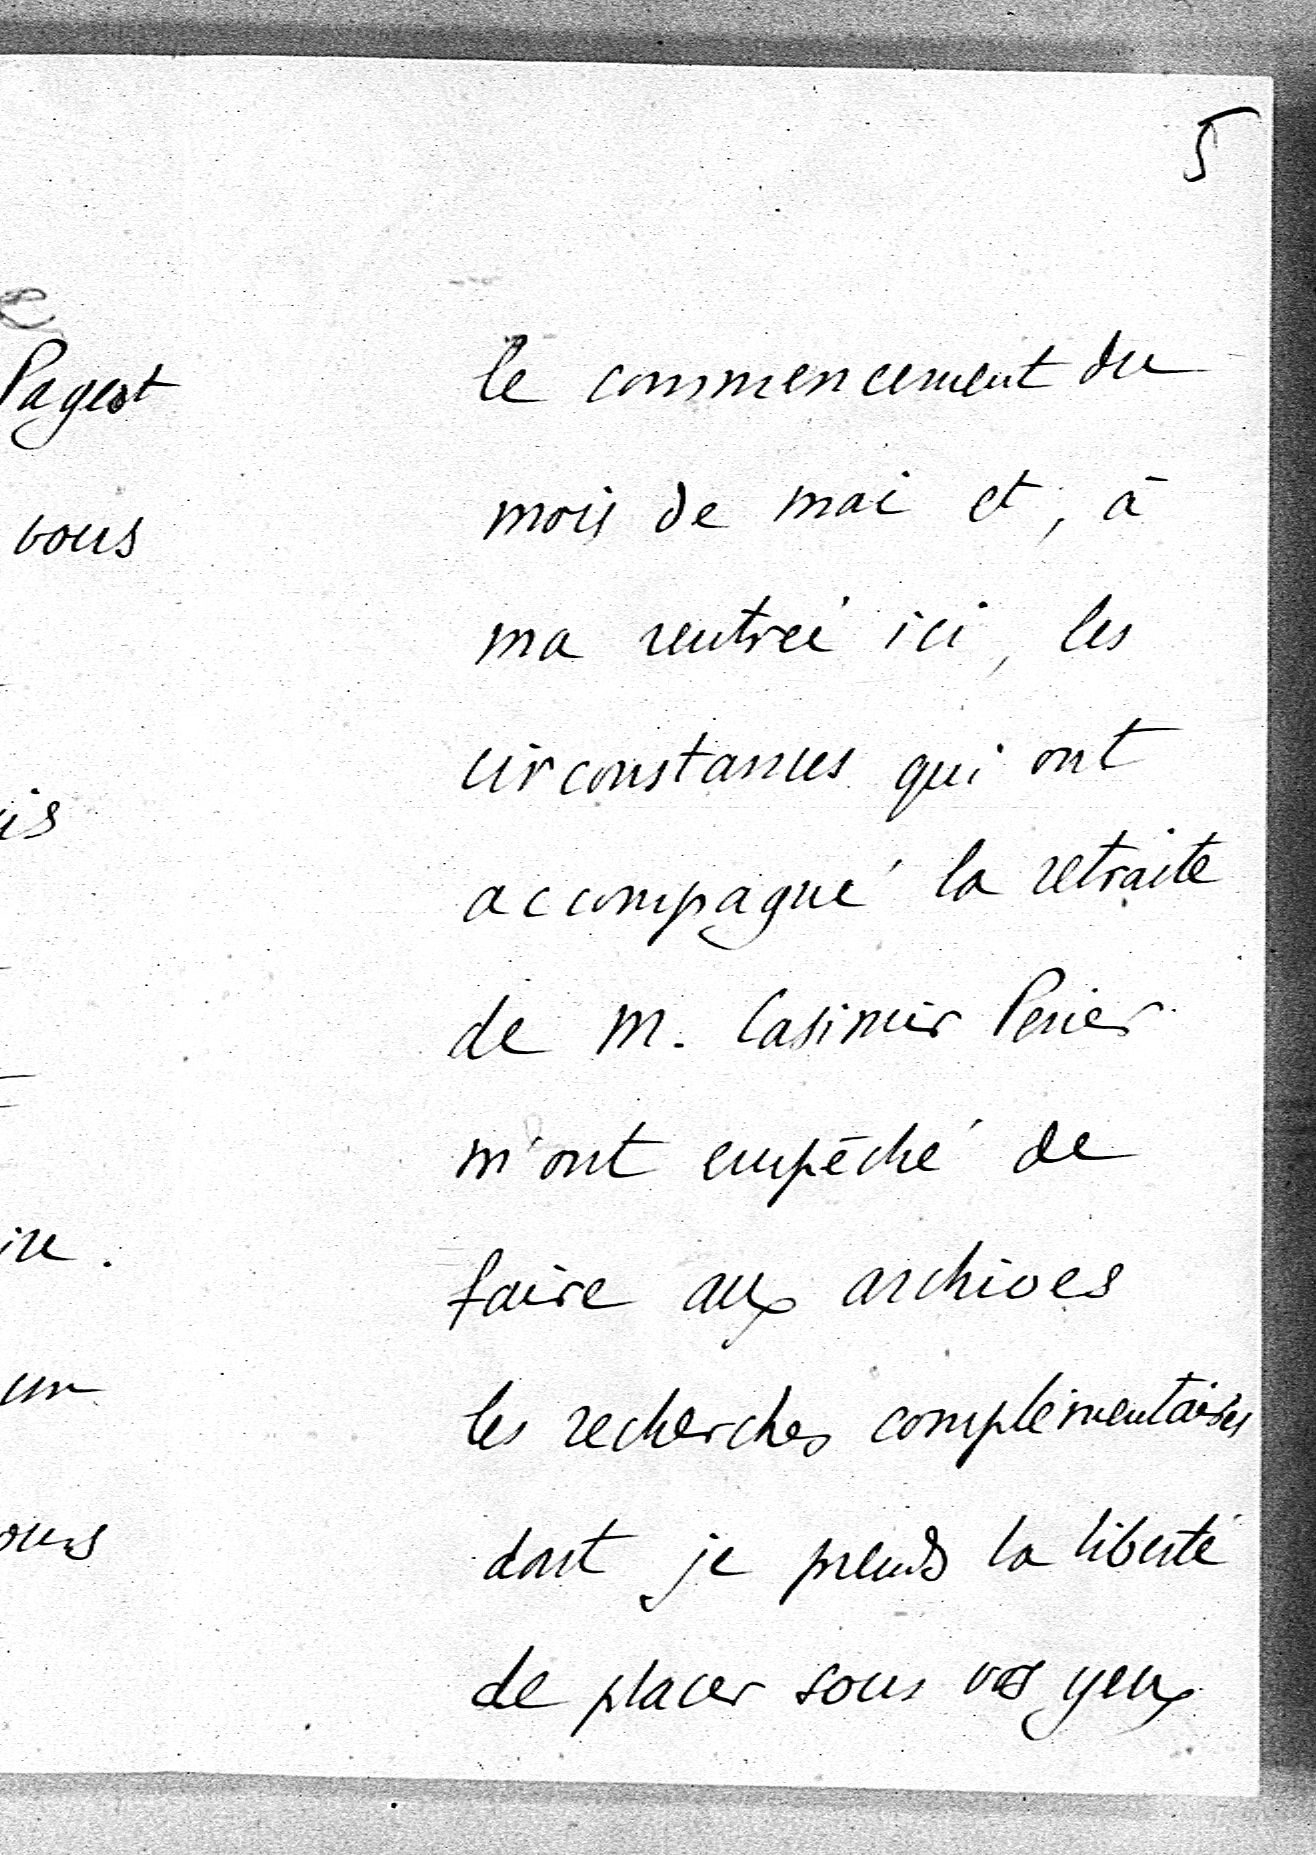 5
Pageot
vous
le commencement du
mois de mai et, à
ma rentrée ici, les
circonstances qui ont
accompagné la retraite
de M. Casimir Perier
m'ont empêché de
faire aux archives
les recherches complémentaires
dont je prends la liberté
de placer sous vos yeux